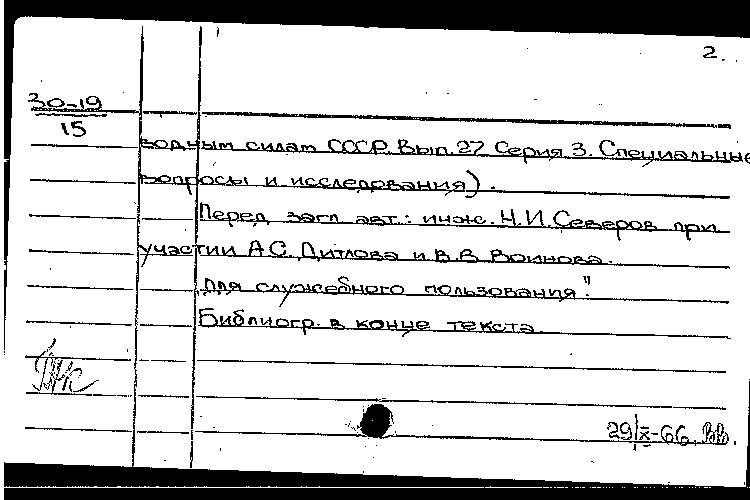 2.
30-19
15
водным силам СССР. Вып. 27. Серия 3. Специальные
вопросы и исследования).
Перед загл. авт.: инж. Н.И. Северов при
участии А.С. Дитлова и В.В. Воинова.
"Для служебного пользования".
Библиогр. в конце текста.
29/X-66. ВВ.